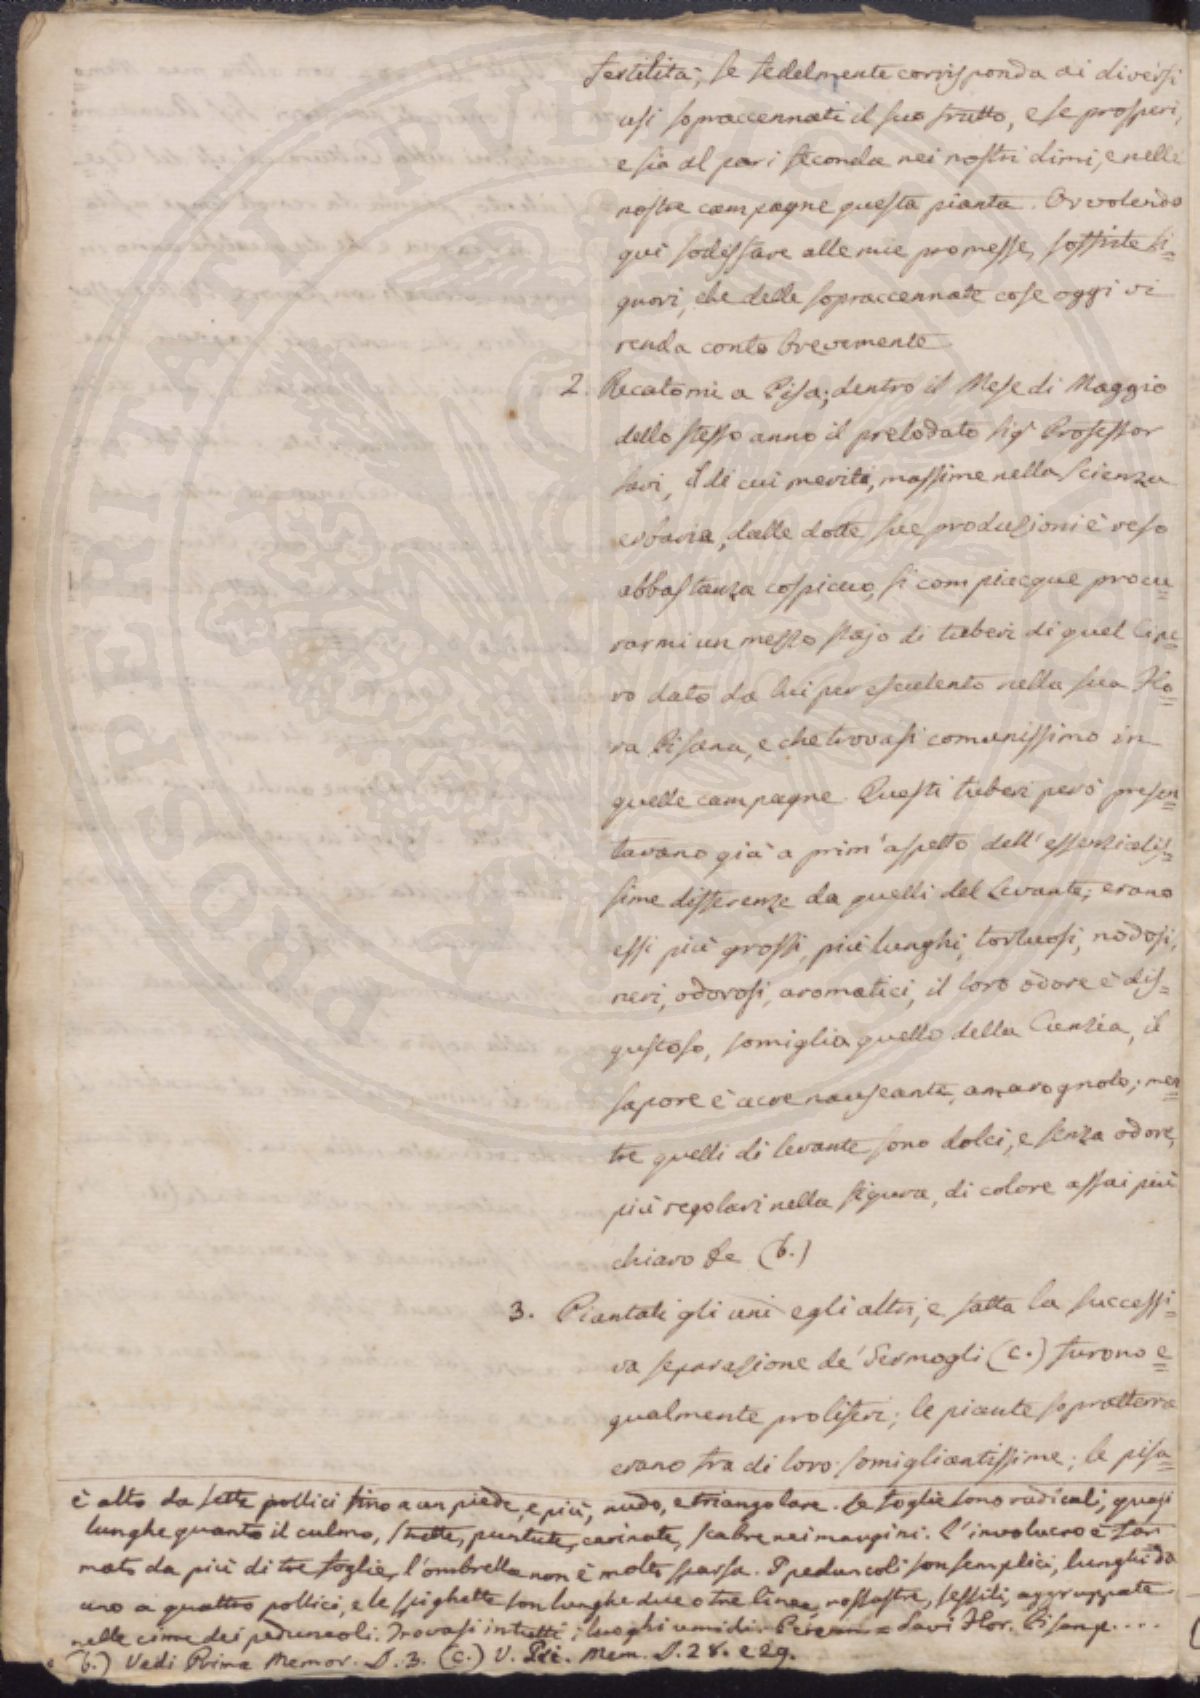 fertilità; se fedelmente corrisponda ai diversi
usi sopraccennati il suo frutto, e se prosperi,
e sia al pari feconda nei nostri climi, e nelle
nostre campagne questa pianta. Or volendo
quì sodisfare alle mie promesse, soffrite Si=
gnori, che delle sopraccennate cose oggi vi
renda conto brevemente
2. Recatomi a Pisa; dentro il Mese di Maggio
dello stesso anno il prelodato Sig.r Professor
Savi, il di cui merito, massime nella Scienza
erbaria, dalle dotte sue produzioni è reso
abbastanza cospicuo, si compiacque procu=
rarmi un mezzo stajo di tuberi di quel Cipe=
ro dato da lui per esculento nella sua Flo=
ra Pisana, e che trovasi comunissimo in
quelle campagne. Questi tuberi però presen=
tavano già a prim'aspetto dell'essenzialis=
sime differenze da quelli del Levante; erano
essi più grossi, più lunghi, tortuosi, nodosi,
neri, odorosi, aromatici, il loro odore è dis=
gustoso, somiglia quello della Canfora, il
sapore è acre nauseante, amarognolo; men=
tre quelli di levante sono dolci, e senza odore,
più regolari nella figura, di colore assai più
chiaro &c (b.)
3. Piantati gli uni e gli altri, e fatta la successi=
va separazione de' Germogli (c.) furono e=
gualmente proliferi; le piante sopratterra
erano fra di loro somigliantissime; le pisa=
è alto da sette pollici fino a un piede, e più, nudo, e triangolare. Le foglie sono radicali, quasi
lunghe quanto il culmo, strette, puntute, carinate, scabre nei margini. L'involucro è for=
mato da più di tre foglie, l'ombrella non è molto sparsa. I peduncoli son semplici, lunghi da
uno a quattro pollici, e le spighette son lunghe due o tre linee, rossastre, sessili, aggruppate
nelle cime dei peduncoli. Trovasi in tutti i luoghi umidi. = Savi Flor. Pisan p. ....
(b.) Vedi Prima Memor. §. 3. (c.) V. Pri. Mem. §. 28. e 29.
PROSPERITATI PVBLICAE